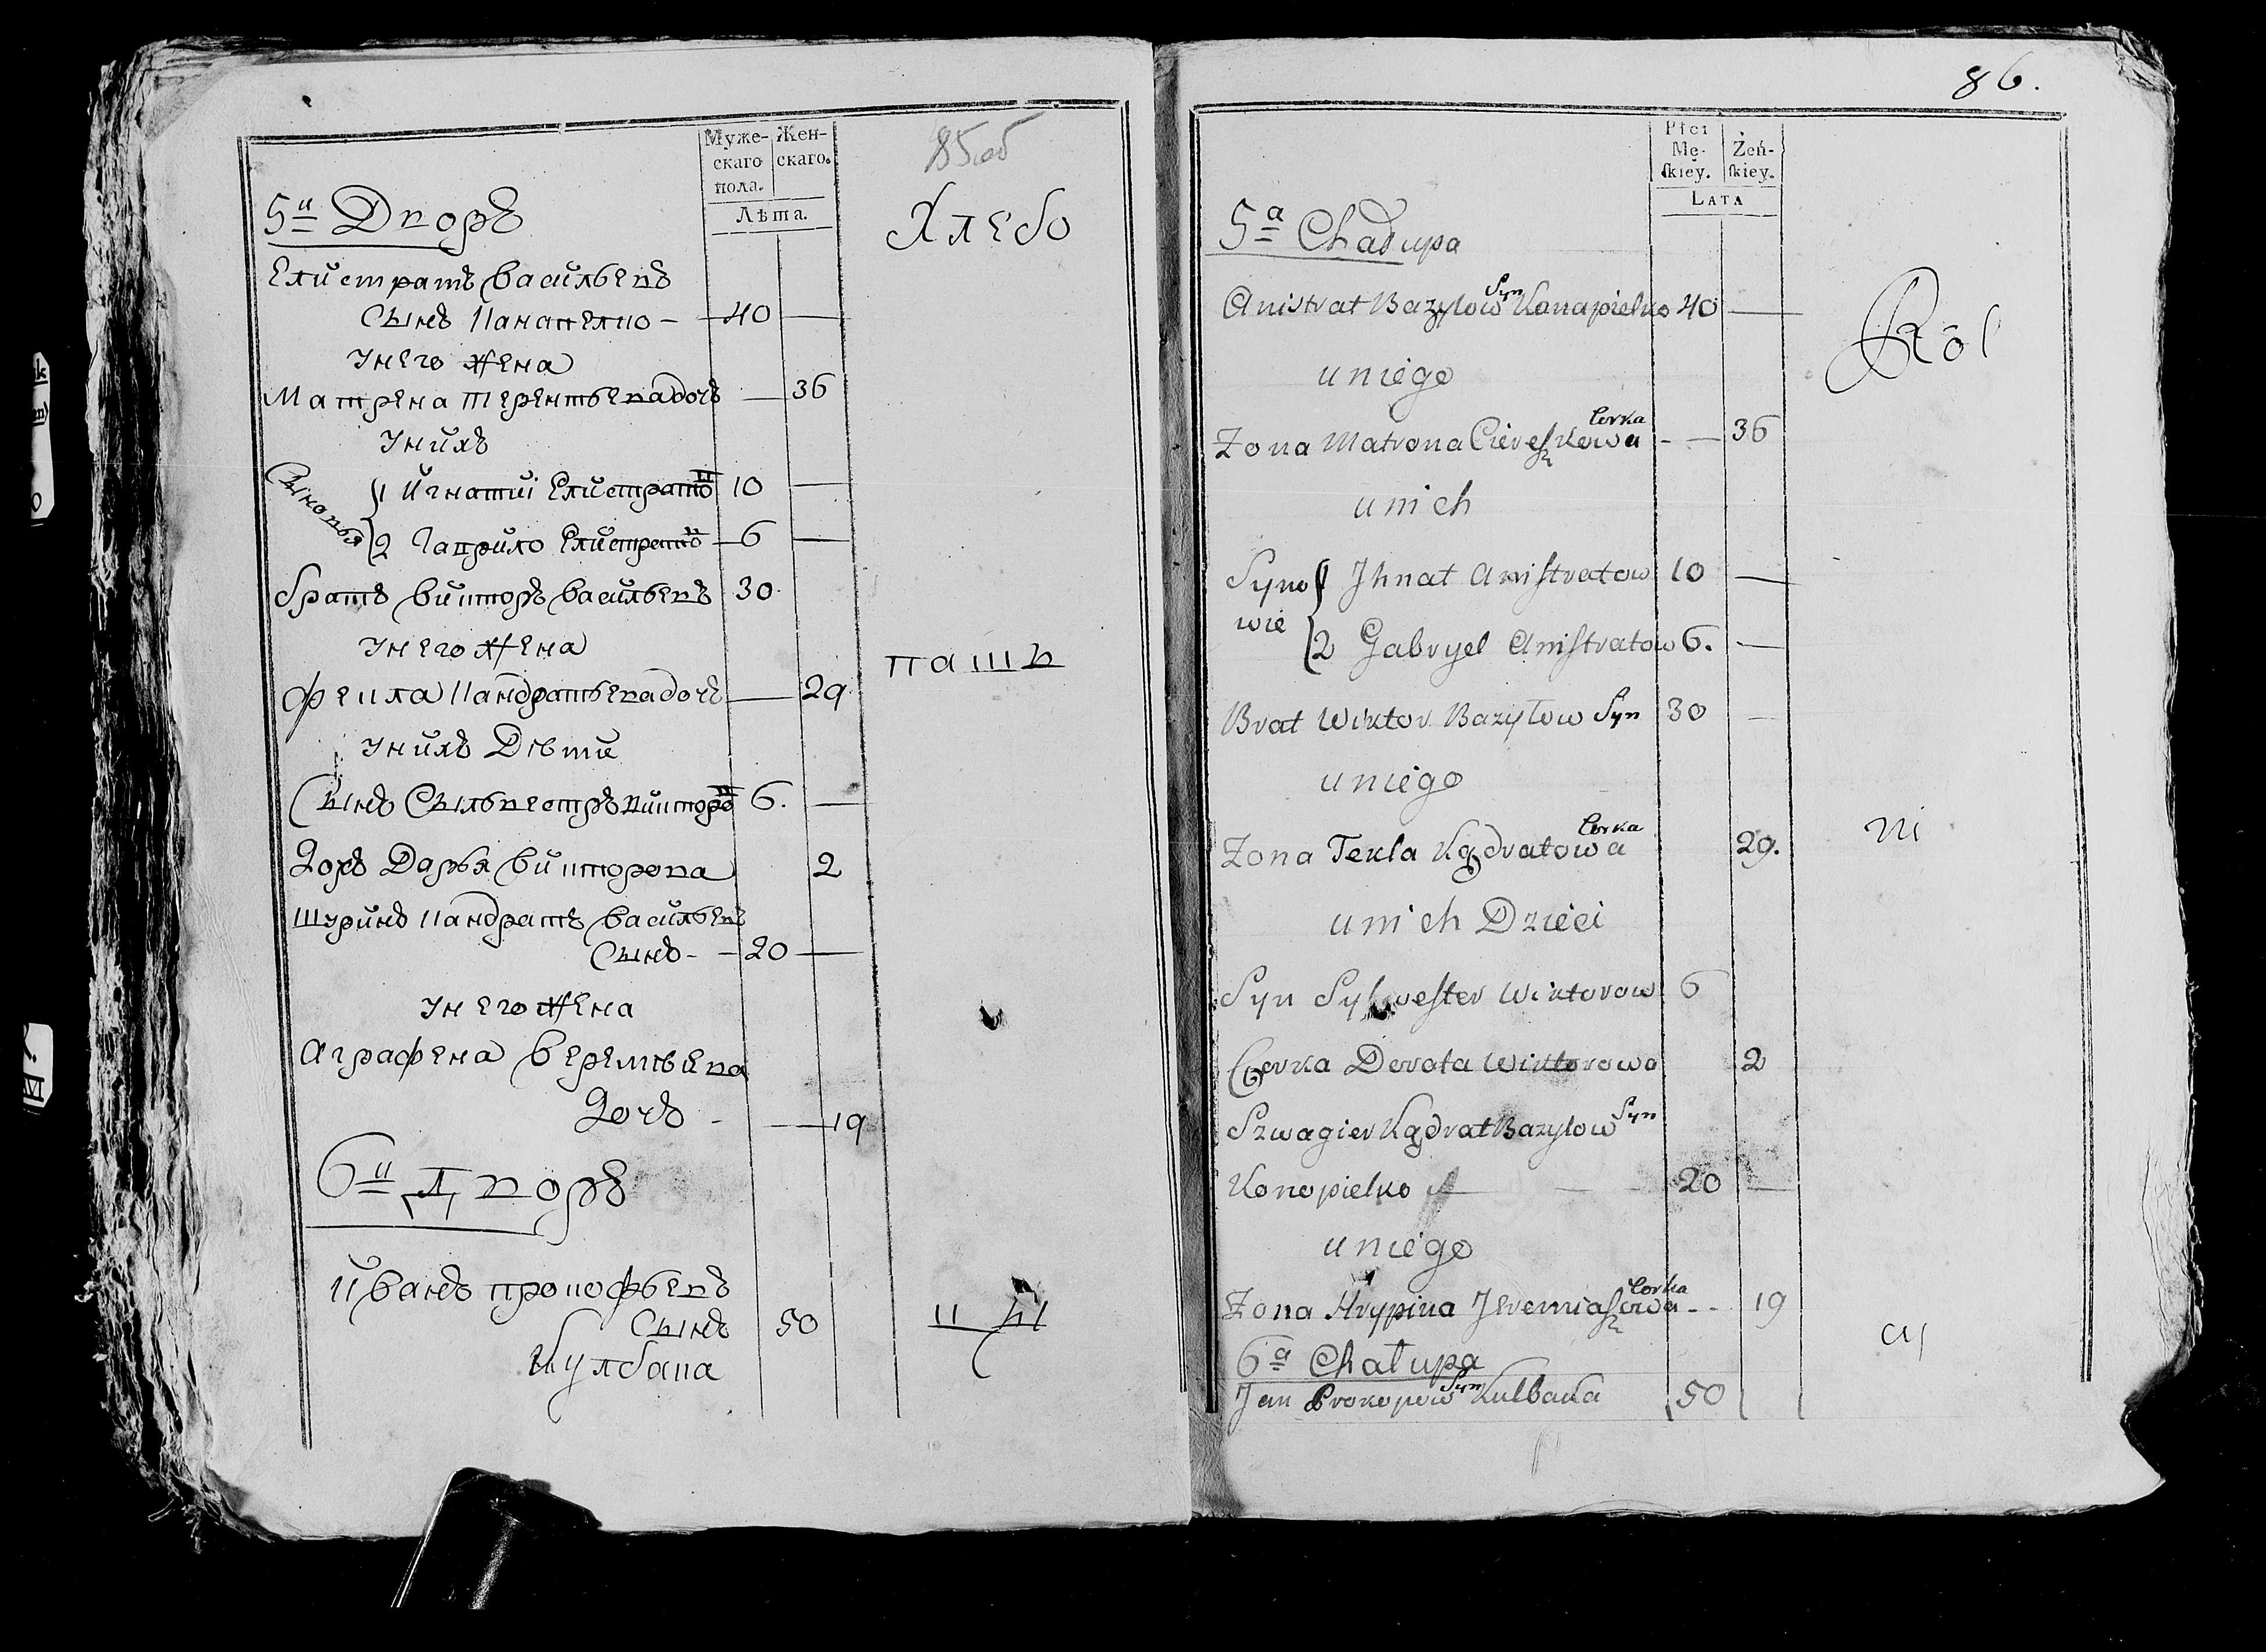 85 об
Муже- Жен-
скаго скаго.
пола.
Лѣта.
5й Дворъ
Хлебо
Елистратъ Васильевъ
Сынъ Канапелко - 40
Унего жена
Матрена Терентьевадочь 36
Унихъ
Сыновья
1 Игнатиі Елистратов 10
2 Гаврило Елистратов 6
братъ Викторъ Васильевъ 30
Унего жена
паш
Фекла Кандратьевадочь 29
Унихъ Дѣти
Сынъ Сыльвестръ Викторов 6.
Дочь Дарья Викторова 2
Шуринъ Кандратъ Васильевъ
Сынъ - 20
Унего жена
Аграфена Веремѣева
Дочь - 19
6й Дворъ
Иванъ Прокофьевъ
Сынъ 50
Кулбака
86.
Płci
Mę- Żeń-
skiey. skiey.
LATA
5a Chałupa
Anistrat Bazylow Syn Kanapielko 40
Rol
u niego
Zona Matrona Ciereszkowa Corka 36
u nich
Syno
wie
1 Jhnat Anistratow 10
2 Gabryel Anistratow 6.
Brat Wiktor Bazyłow Syn 30
u niego
Zona Tekla Kądratowa Corka 29.
ni
u nich Dzieci
Syn Sylwester Wiktorow 6
Corka Dorota Wiktorowa 2
Szwagier Kądrat Bazylow Syn
Konopielko 20
u niego
Zona Hrypina Jeremiaszowa Corka 19
cy
6a Chałupa
Jan Prokopow Syn Kulbaka 50